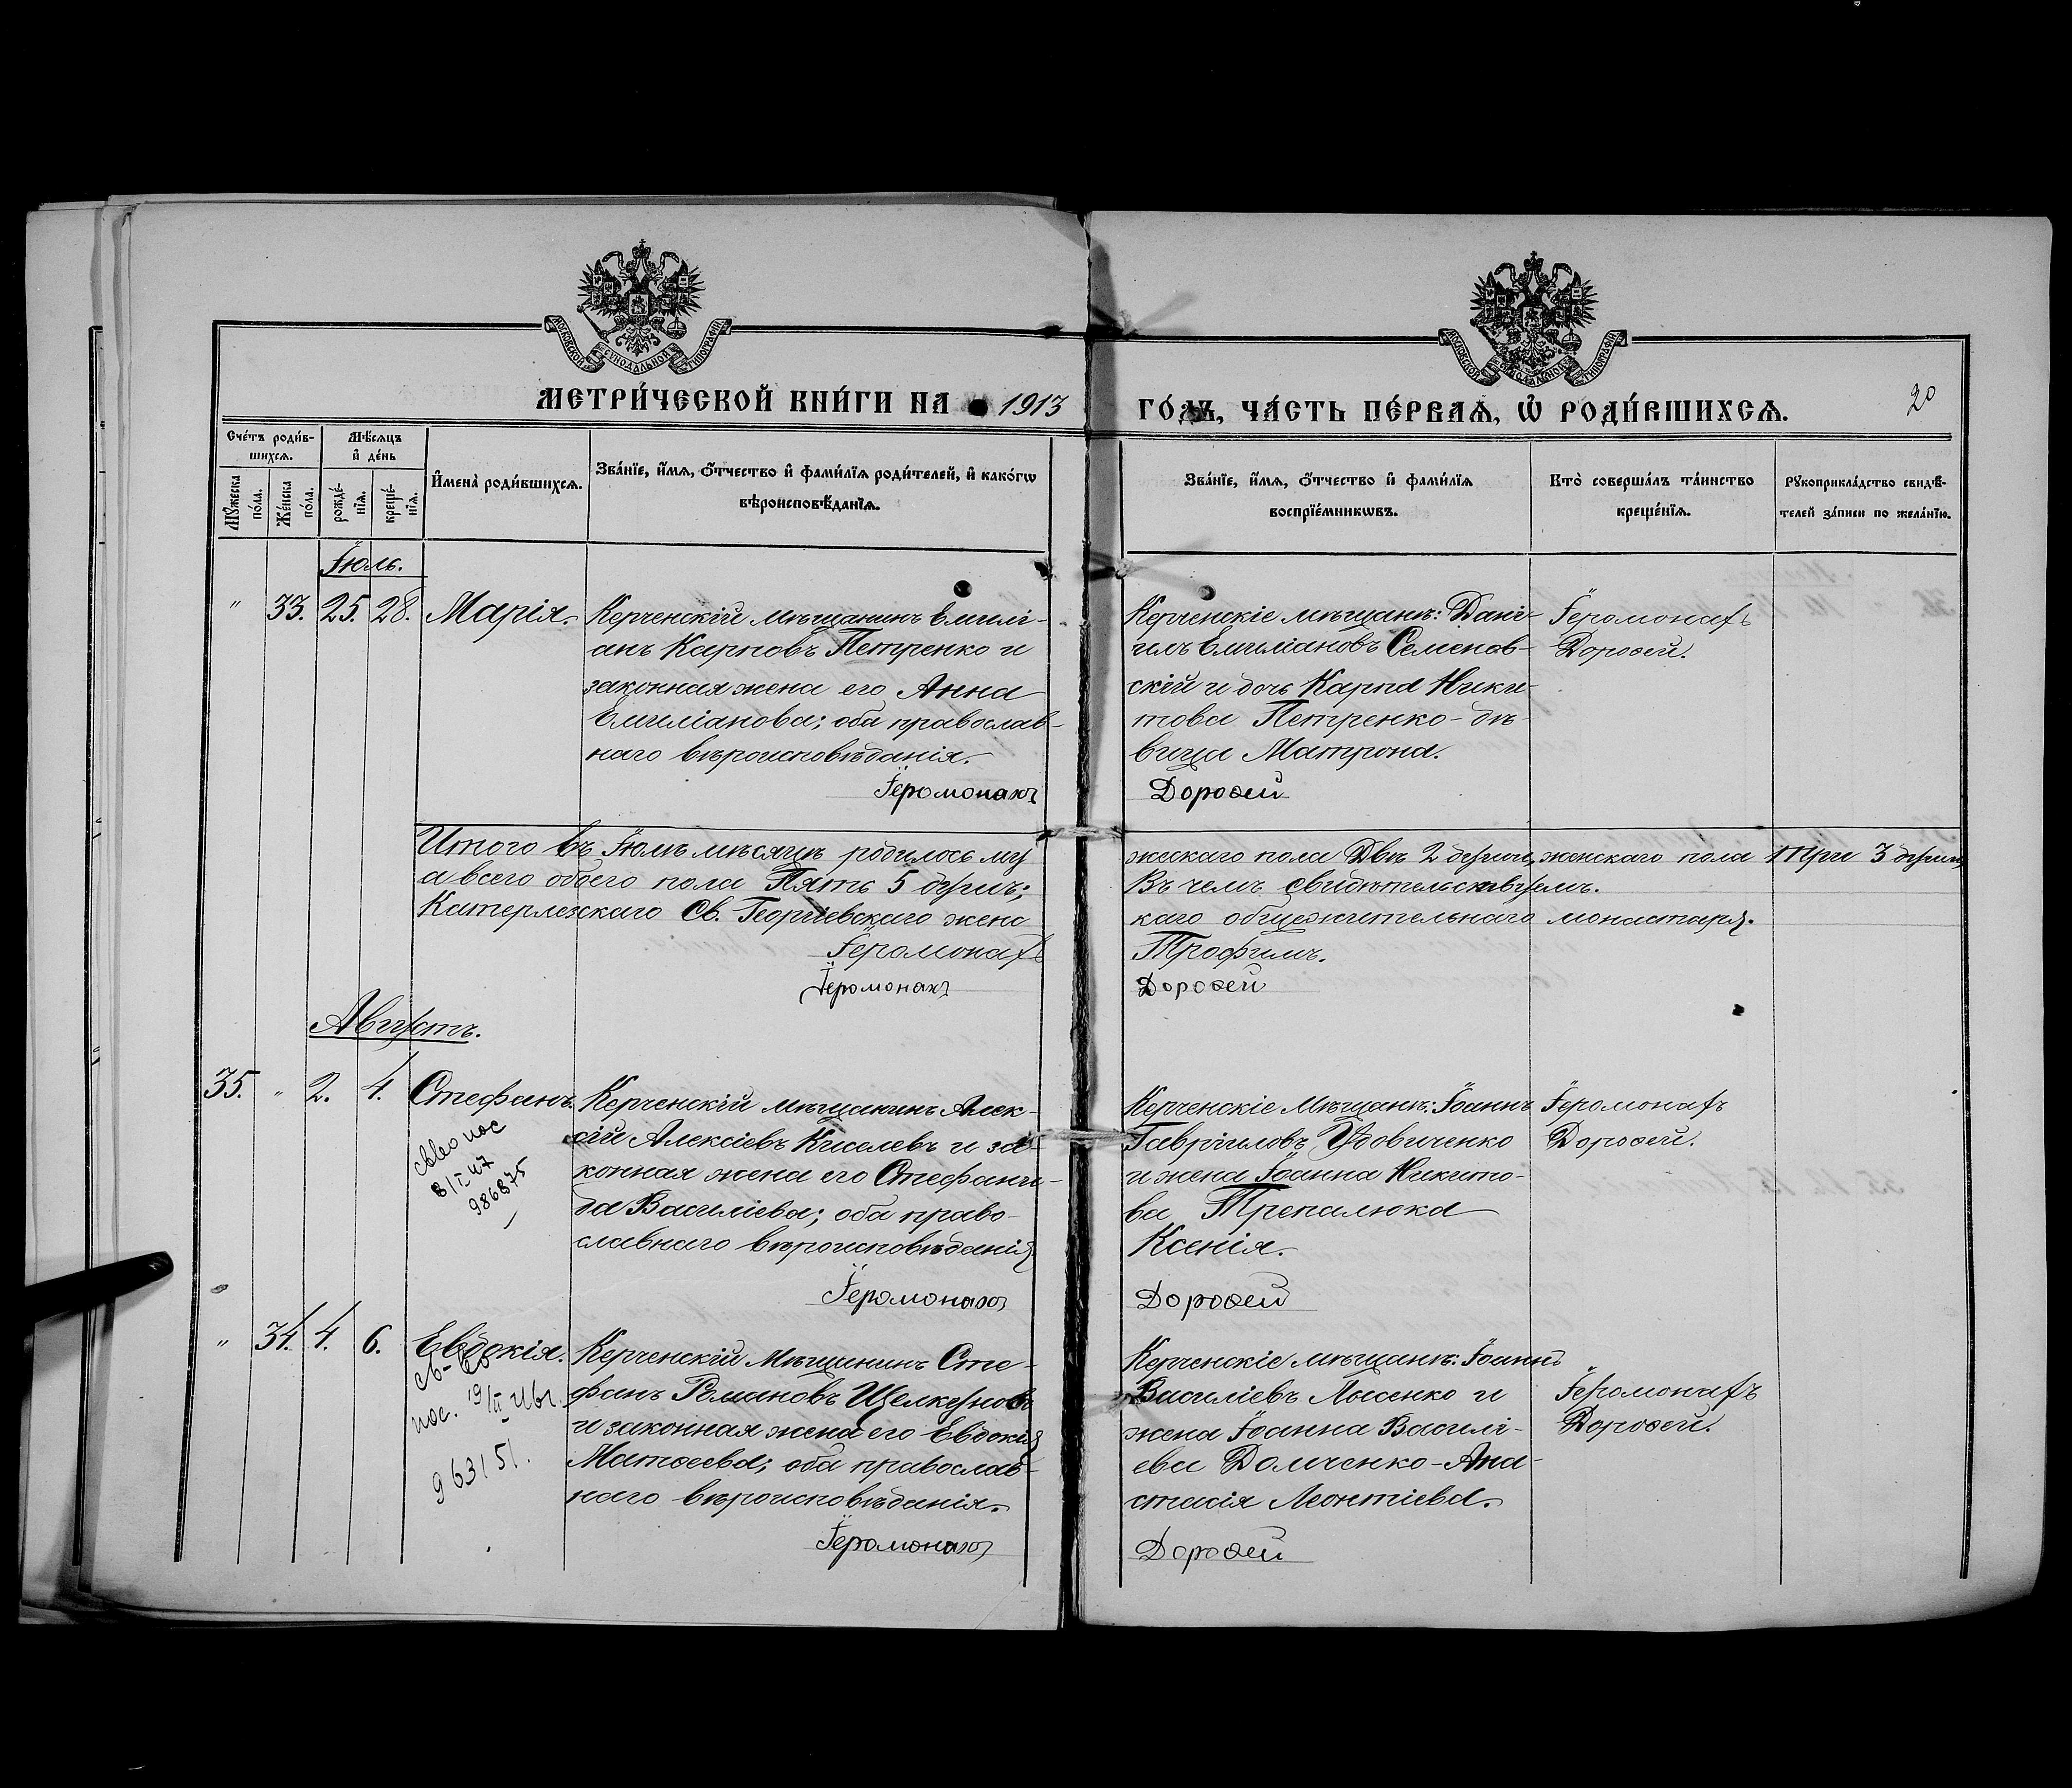 МОСКОВСКОЙ СѴНОДАЛЬНОЙ ТИПОГРАФІИ
МОСКОВСКОЙ СѴНОДАЛЬНОЙ ТИПОГРАФІИ
МЕТРИ́ЧЕСКОЙ КНИ́ГИ НА 1913
ГО́ДЪ, ЧА́СТЬ ПЕ́РВАѦ, Ѡ҆ РОДИ́ВШИХСѦ.
20
Сче́тъ роди́в-
шихсѧ.
Мѣ́сѧцъ
и҆ де́нь
Мꙋ́жеска
по́ла.
Же́нска
по́ла.
рожде́-
нїѧ.
креще́-
нїѧ.
И҆мена̀ роди́вшихсѧ.
Зва́нїе, и҆́мѧ, ѻ҆́тчество и҆ фами́лїѧ роди́телей, и҆ како́гѡ
вѣроисповѣ́данїѧ.
Зва́нїе, и҆́мѧ, ѻ҆́тчество и҆ фами́лїѧ
воспрїе́мникѡвъ.
Кто̀ соверша́лъ та́инство
креще́нїѧ.
Рꙋкоприкла́дство свидѣ́-
телей за́писи по жела́нїю.
Іюль.
" 33. 25. 28. Марія.
Керченскій мѣщанинъ Емилі-
анъ Карповъ Петренко и
законная жена его Анна
Емиліанова; оба православ-
наго вѣроисповѣданія.
Іеромонахъ
Керченскіе мѣщане: Дані-
илъ Емиліановъ Семенов-
скій и дочь Карпа Ники-
това Петренко - дѣ-
вица Матрона.
Дороѳей
Іеромонахъ
Дороѳей.
Итого въ Іюлѣ мѣсяцѣ родилось му
жескаго пола Двѣ 2 души, женскаго пола Три 3 души,
а всего обоего пола Пять 5 душъ;
Въ чемъ свидѣтельствуемъ.
Катерлезскаго Св. Георгіевскаго женс
каго общежительнаго монастыря.
Іеромонахъ
Трофимъ.
Іеромонахъ
Дороѳей
Августъ.
35. " 2. 4. Стефанъ.
8/I 47
986875
Керченскій мѣщанинъ Алек-
сій Алексіевъ Киселевъ и за-
конная жена его Стефани-
да Василіева; оба право-
славнаго вѣроисповѣданія.
Іеромонахъ
Керченскіе Мѣщане: Іоаннъ
Гавріиловъ Удовиченко
и жена Іоанна Никито-
ва Трепалюка
Ксенія.
Дороѳей
Іеромонахъ
Дороѳей.
" 34. 4. 6. Евдокія.
963151.
Керченскій Мѣщанинъ Сте-
фанъ Романовъ Щелкуновъ
и законная жена его Евдокія
Матѳеева; оба православ-
наго вѣроисповѣданія.
Іеромонахъ
Керченскіе мѣщане: Іоаннъ
Василіевъ Лысенко и
жена Іоанна Василі-
ева Домченко - Ана-
стасія Леонтіева.
Дороѳей
Іеромонахъ
Дороѳей.